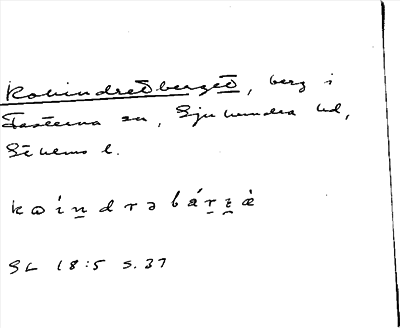 Kovindredberged, berg i
Fasterna sn, Sjuhundra hd,
Sthlms l.
kωindrəbárgè
SL 18:5 s. 37